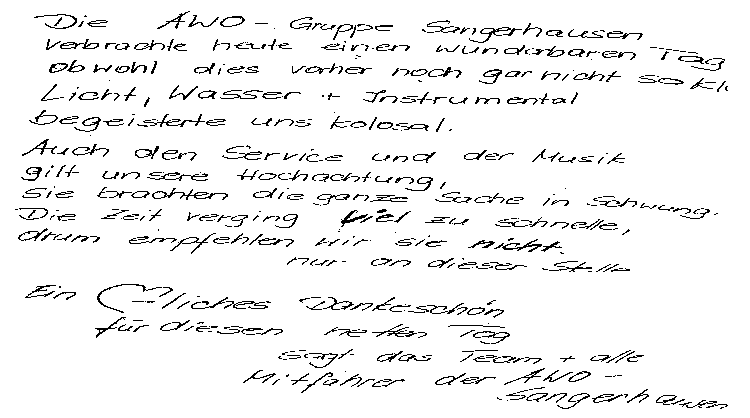 Die AWO - Gruppe Sangerhausen
verbrachte heute einen wunderbaren Tag
obwohl dies vorher noch gar nicht so kl
Licht, Wasser + Instrumental
begeisterte uns kolosal.
Auch den Service und der Musik
gilt unsere Hochachtung,
sie brachten die ganze Sache in Schwung.
Die Zeit verging viel zu schnelle,
drum empfehlen wir sie nicht
nur an dieser Stelle
Ein ♡liches Dankeschön
für diesen netten Tag
sagt das Team + alle
Mitfahrer der AWO -
Sangerhausen